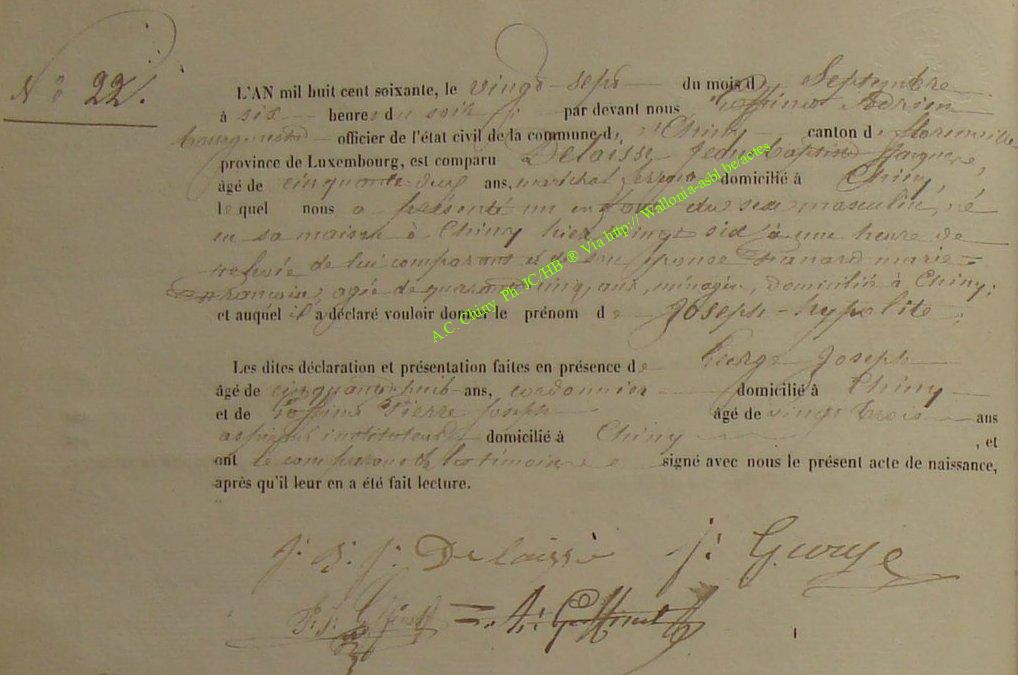 N° 22.
L'AN mil huit cent soixante, le vingt-sept du mois d Septembre
à six heures du soir par devant nous Goffinet Adrien
bourgmestre officier de l'état civil de la commune de Chiny canton de Florenville
province de Luxembourg, est comparu Delaisse Jean-baptiste Jaques
âgé de cinquante deux ans, maréchal ferrant domicilié à Chiny,
lequel nous a présenté un enfant du sexe masculin, né
en sa maison à Chiny hier vingt six à une heure de
relevée de lui comparant et de son épouse marie =
françoise, agée de quarante cinq ans, ménagère, domiciliée à Chiny;
et auquel il a déclaré vouloir donner le prénom de Joseph-hypolite;
Les dites déclaration et présentation faites en présence de George Joseph
âgé de cinquante huit ans, cordonnier domicilié à Chiny
et de Goffinet Pierre Joseph âgé de vingt trois ans
aspirant instituteur domicilié à Chiny , et
ont le comparant et les témoins signé avec nous le présent acte de naissance,
après qu'il leur en a été fait lecture.
J. B. J. Delaissé J. George
P. J. Goffinet A. Goffinet
A.C. Chiny Ph JC/HB ® Via http:// Wallonia-asbl.be/actes